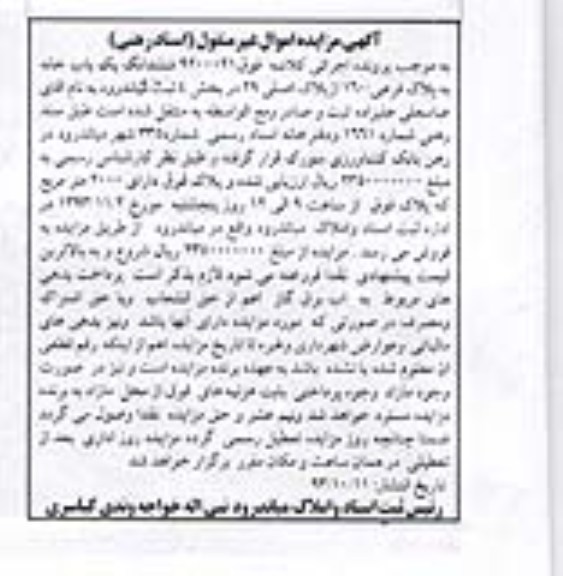 آگهی مزایده اموال غیر منقول (اسناد رهنی)
به موجب پرونده اجرائی کلاسه فوق ششدانگ یک باب خانه
به پلاک فرعی ۱۶۰۰ از پلاک اصلی ۲۹ در بخش ٤ ثبت گیلندرود به نام آقای
عباسعلی علیزاده ثبت و صادر ومع الواسطه به منتقل شده است طبق سند
رهنی شماره ۱۹۹۱ دفترخانه اسناد رسمی شماره ۲۳۵ شهر میاندرود در
رهن بانک کشاورزی سورک قرار گرفته و طبق نظر کارشناس رسمی به
مبلغ ریال ارزیابی شده و پلاک فوق دارای ۲۰۰۰ متر مربع
که پلاک فوق از ساعت ۹ الی ۱۲ روز پنجشنبه مورخ در
اداره ثبت اسناد واملاک میاندرود واقع در میاندرود از طریق مزایده به
فروش می رسد . مزایده از مبلغ ریال شروع و به بالاترین
قیمت پیشنهادی نقدا فروخته می شود لازم بذکر است پرداخت بدهی
های مربوط به آب برق گاز اعم از حق انشعاب ویا حق اشتراک
ومصرف در صورتی که مورد مزایده دارای آنها باشد ونیز بدهی های
مالیاتی وعوارض شهرداری وغیره تا تاریخ مزایده اعم از اینکه رقم قطعی
آن معلوم شده یا نشده باشد به عهده برنده مزایده است و نیز در صورت
وجود مازاد وجوه پرداختی بابت هزینه های فوق از محل مازاد به برنده
مزایده مسترد خواهد شد ونیم عشر و حق مزایده نقدا وصول می گردد
ضمنا چنانچه روز مزایده تعطیل رسمی گردد مزایده روز اداری بعد از
تعطیلی در همان ساعت و مکان مقرر برگزار خواهد شد
تاریخ انتشار: ۹۳/۱۰/۱۱
رئیس ثبت اسناد واملاک میاندرود نبی اله خواجه وندی کیاسری